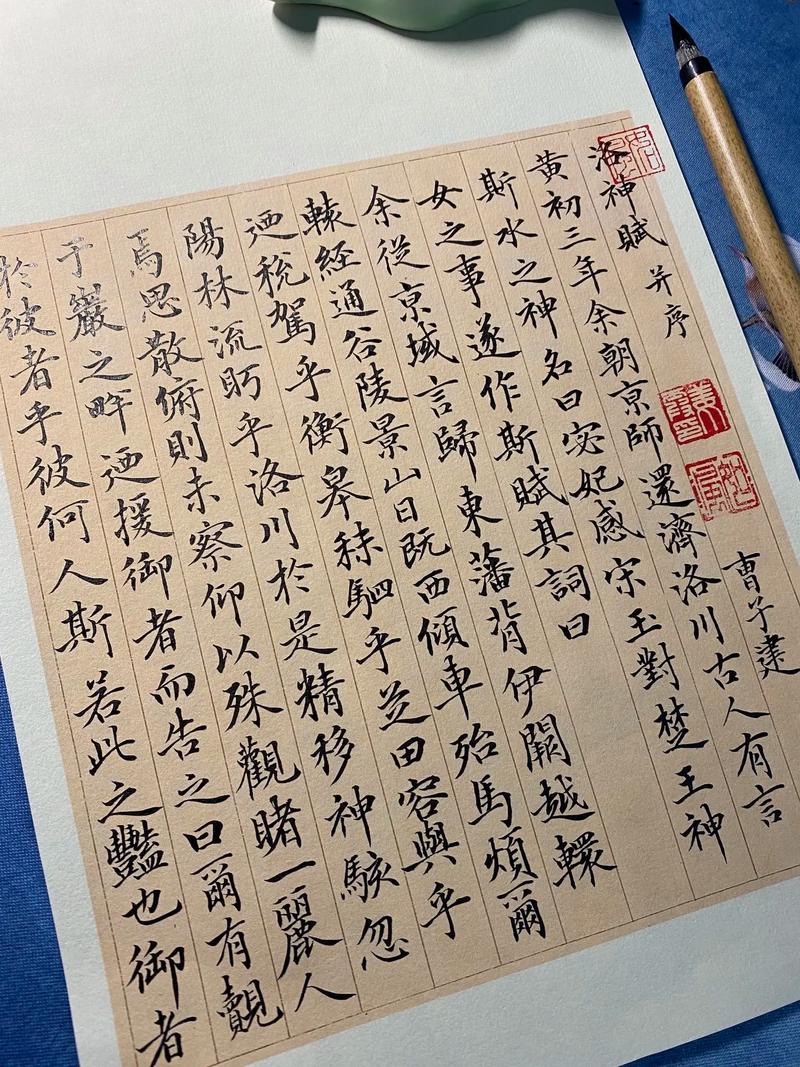 洛神賦 并序 曹子建
黄初三年余朝京師還濟洛川古人有言
斯水之神名曰宓妃感宋玉對楚王神
女之事遂作斯賦其詞曰
余從京域言歸東藩背伊闕越轘
轅經通谷陵景山日既西傾車殆馬煩爾
迺稅駕乎衡皋秣駟乎芝田容與乎
陽林流眄乎洛川於是精移神駭忽
焉思散俯則未察仰以殊觀睹一麗人
于巖之畔迺援御者而告之曰爾有覿
於彼者乎彼何人斯若此之豔也御者